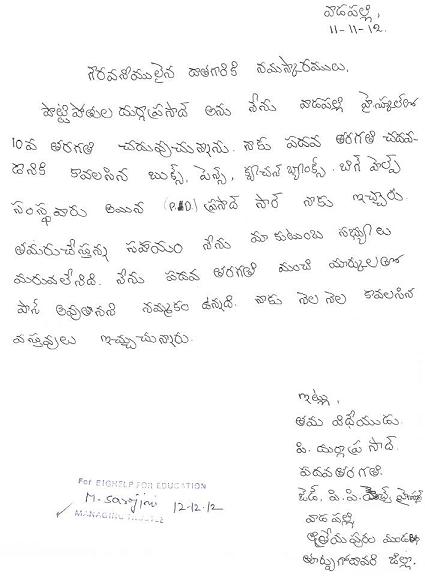 వాడపల్లి,
11-11-12.
గౌరవనీయులైన దాతగారికి నమస్కారములు.
పొట్టిపోతుల దుర్గాప్రసాద్ అను నేను వాడపల్లి హైస్కూల్‌లో
10వ తరగతి చదువుచున్నాను. నాకు పదవ తరగతి చదవ-
డానికి కావలసిన బుక్స్, పెన్స్, క్వశ్చన్ బ్యాంక్స్. బిగ్ హెల్ప్
సంస్థవారు అయిన (P.D) ప్రసాద్ సార్ నాకు ఇచ్చారు.
తమరుచేస్తున్న సహాయం నేను మా కుటుంబ సభ్యులు
మరువలేనిది. నేను పదవ తరగతి మంచి మార్కులతో
పాస్ అవుతానని నమ్మకం ఉన్నది. నాకు నెల నెల కావలసిన
వస్తువులు ఇచ్చుచున్నారు.
ఇట్లు,
తమ విధేయుడు.
పి. దుర్గాప్రసాద్.
పదవతరగతి.
జెడ్. పి. పి. హైస్కూల్
వాడపల్లి
ఆత్రేయపురం మండలం
తూర్పుగోదావరి జిల్లా.
For BIGHELP FOR EDUCATION
M. Sarojini 12-12-12
MANAGING TRUSTEE